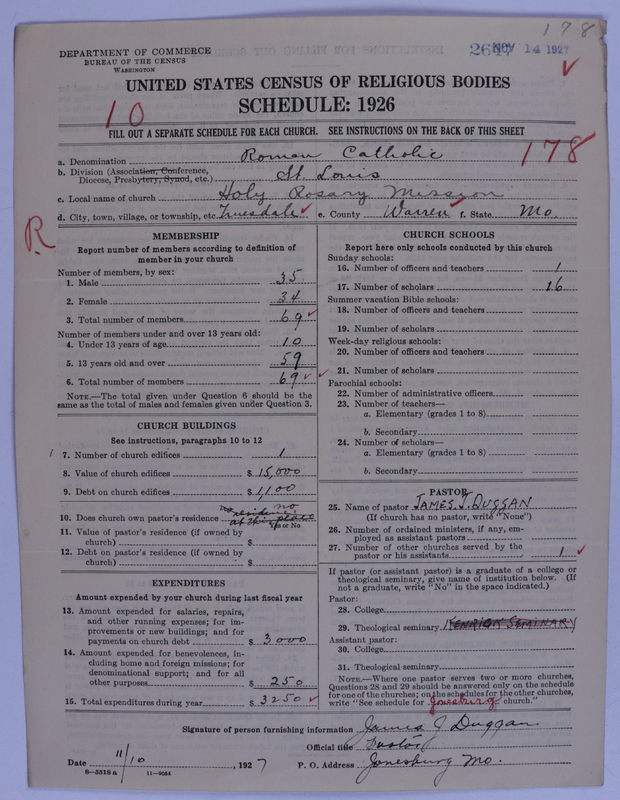 178
DEPARTMENT OF COMMERCE
BUREAU OF THE CENSUS
WASHINGTON
NOV 14 1927
UNITED STATES CENSUS OF RELIGIOUS BODIES
SCHEDULE: 1926
10
FILL OUT A SEPARATE SCHEDULE FOR EACH CHURCH. SEE INSTRUCTIONS ON THE BACK OF THIS SHEET
a. Denomination Roman Catholic
178
b. Division (Association, Conference, Diocese, Presbytery, Synod, etc.) St. Louis
c. Local name of church Holy Rosary Mission
d. City, town, village, or township, etc. Truesdale e. County Warren f. State Mo.
R
MEMBERSHIP
Report number of members according to definition of
member in your church
Number of members, by sex:
1. Male 35
2. Female 34
3. Total number of members 69
Number of members under and over 13 years old:
4. Under 13 years of age 10
5. 13 years old and over 59
6. Total number of members 69
NOTE.—The total given under Question 6 should be the
same as the total of males and females given under Question 3.
CHURCH BUILDINGS
See instructions, paragraphs 10 to 12
7. Number of church edifices 1
8. Value of church edifices $ 15,000
9. Debt on church edifices $ 1,100
no
residence
at this place
10. Does church own pastor's residence
Yes or No
11. Value of pastor's residence (if owned by
church) $
12. Debt on pastor's residence (if owned by
church) $
EXPENDITURES
Amount expended by your church during last fiscal year
13. Amount expended for salaries, repairs,
and other running expenses; for im-
provements or new buildings; and for
payments on church debt $ 3000
14. Amount expended for benevolences, in-
cluding home and foreign missions; for
denominational support; and for all
other purposes $ 250
15. Total expenditures during year $ 3250
CHURCH SCHOOLS
Report here only schools conducted by this church
Sunday schools:
16. Number of officers and teachers 1
17. Number of scholars 16
Summer vacation Bible schools:
18. Number of officers and teachers
19. Number of scholars
Week-day religious schools:
20. Number of officers and teachers
21. Number of scholars
Parochial schools:
22. Number of administrative officers
23. Number of teachers—
a. Elementary (grades 1 to 8)
b. Secondary
24. Number of scholars—
a. Elementary (grades 1 to 8)
b. Secondary
PASTOR
25. Name of pastor JAMES J. DUGGAN
(If church has no pastor, write "None")
26. Number of ordained ministers, if any, em-
ployed as assistant pastors
27. Number of other churches served by the
pastor or his assistants 1
If pastor (or assistant pastor) is a graduate of a college or
theological seminary, give name of institution below. (If
not a graduate, write "No" in the space indicated.)
Pastor:
28. College
29. Theological seminary KENRICK SEMINARY
Assistant pastor:
30. College
31. Theological seminary
NOTE.—Where one pastor serves two or more churches,
Questions 28 and 29 should be answered only on the schedule
for one of the churches; on the schedules for the other churches,
write "See schedule for Jonesburg church."
Signature of person furnishing information James J Duggan
Official title Pastor
Date 11/10, 1927 P. O. Address Jonesburg Mo.
8-5518a 11-9054